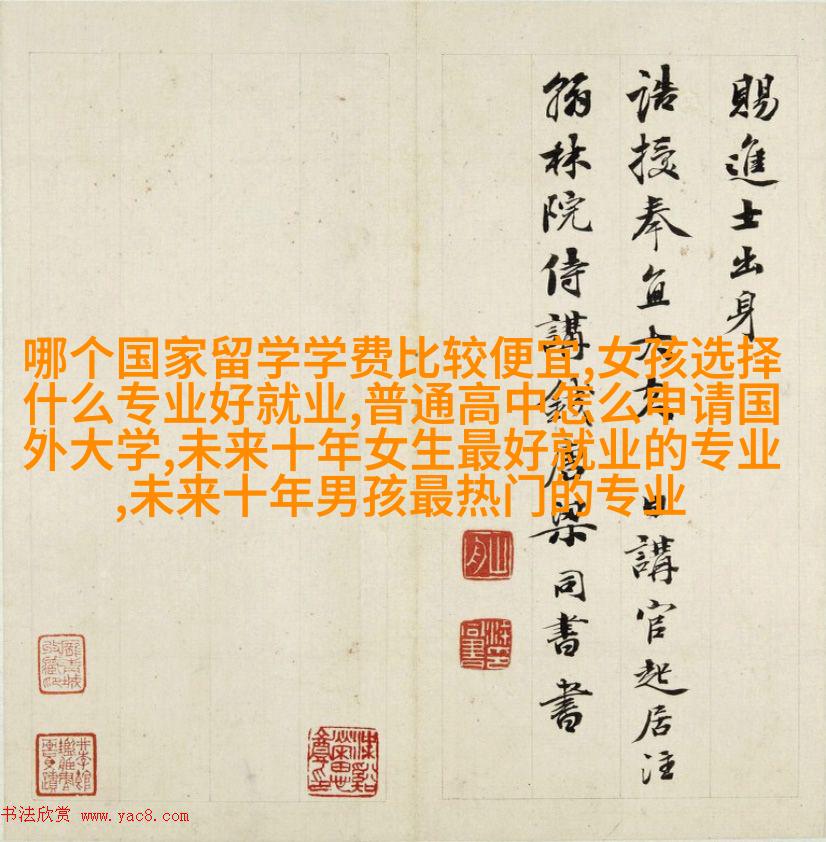 賜進士出身
誥授奉直大夫日講官起居注
翰林院侍講錢唐梁同書書
哪个国家留学学费比较便宜,女孩选择
什么专业好就业,普通高中怎么申请国
外大学,未来十年女生最好就业的专业
,未来十年男孩最热门的专业
书法欣赏 www.yac8.com